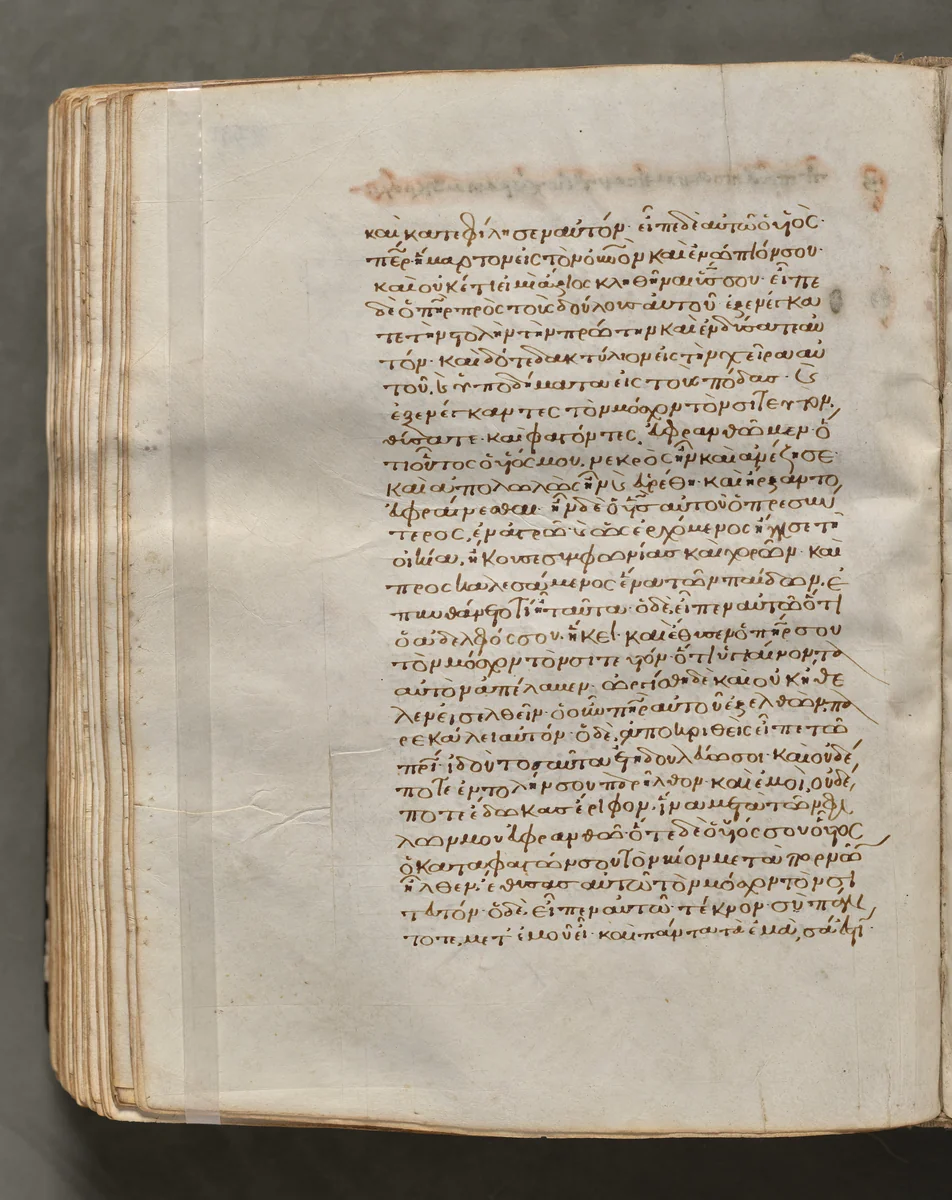 καὶ κατεφίλησεν αὐτόν· εἶπε δὲ αὐτῶ ὁ υἱὸς·
πε̅ρ· ἥμαρτον εἰς τὸν οὐ̅νὸν καὶ ἐνώπιόν σου·
καὶ οὐκέτι εἰμὶ ἄξιος κληθῆναι υἱός σου· εἶπε
δὲ ὁ πη̅ρ πρὸς τοὺς δούλους αὐτοῦ ἐξενέγκα
τε τὴν στολὴν τὴν πρώτην καὶ ἐνδύσατε αὐ
τόν· καὶ δότε δακτύλιον εἰς τὴν χεῖρα αὐ
τοῦ, ϗ ὑποδήματα εἰς τοὺς πόδας· ϗ
ἐξενέγκαντες τὸν μόσχον τὸν σιτευτὸν,
θύσατε· καὶ φαγόντες, εὐφρανθῶμεν· ὅ
τι οὗτος ὁ υἱός μου, νεκρὸς ἦν καὶ ἀνέζησε·
καὶ ἀπολωλὼς ἦν ϗ εὑρέθη· καὶ ἤρξαντο,
εὐφραίνεσθαι· ἦν δὲ ὁ υἱὸς αὐτοῦ ὁ πρεσβύ
τερος, ἐν ἀγρῶ· ϗ ὡς ἐρχόμενος ἤγγισε τῆ
οἰκία, ἤκουσε συμφωνίας καὶ χορῶν· καὶ
προσκαλεσάμενος ἕνα τῶν παίδων, ἐ
πυνθάνετο τί εἴη ταῦτα· ὁ δὲ, εἶπεν αὐτῶ ὅτι
ὁ ἀδελφός σου, ἥκει· καὶ ἔθυσεν ὁ πη̅ρ σου
τὸν μόσχον τὸν σιτευτόν· ὅτι ὑγιαίνοντα
αὐτὸν ἀπέλαβεν· ὠργίσθη δὲ καὶ οὐκ ἤθε
λεν εἰσελθεῖν· ὁ οὖν πη̅ρ αὐτοῦ ἐξελθὼν, πα
ρεκάλει αὐτόν· ὁ δὲ, ἀποκριθεὶς εἶπε τῶ
πρι̅· ἰδοὺ τοσαῦτα ἔτη δουλεύω σοι· καὶ οὐδέ
ποτε ἐντολήν σου παρῆλθον· καὶ ἐμοὶ, οὐδέ
ποτε ἔδωκας ἔριφον, ἵνα μετὰ τῶν φί
λων μου εὐφρανθῶ· ὅτε δὲ ὁ υἱός σου οὗτος
ὁ καταφαγών σου τὸν βίον μετὰ πορνῶν
ἦλθεν, ἔθυσας αὐτῶ τὸν μόσχον τὸν σι
τευτόν· ὁ δὲ, εἶπεν αὐτῶ· τέκνον· σὺ πάν
τοτε, μετ' ἐμοῦ εἶ· καὶ πάντα τὰ ἐμὰ, σά ἐστι·